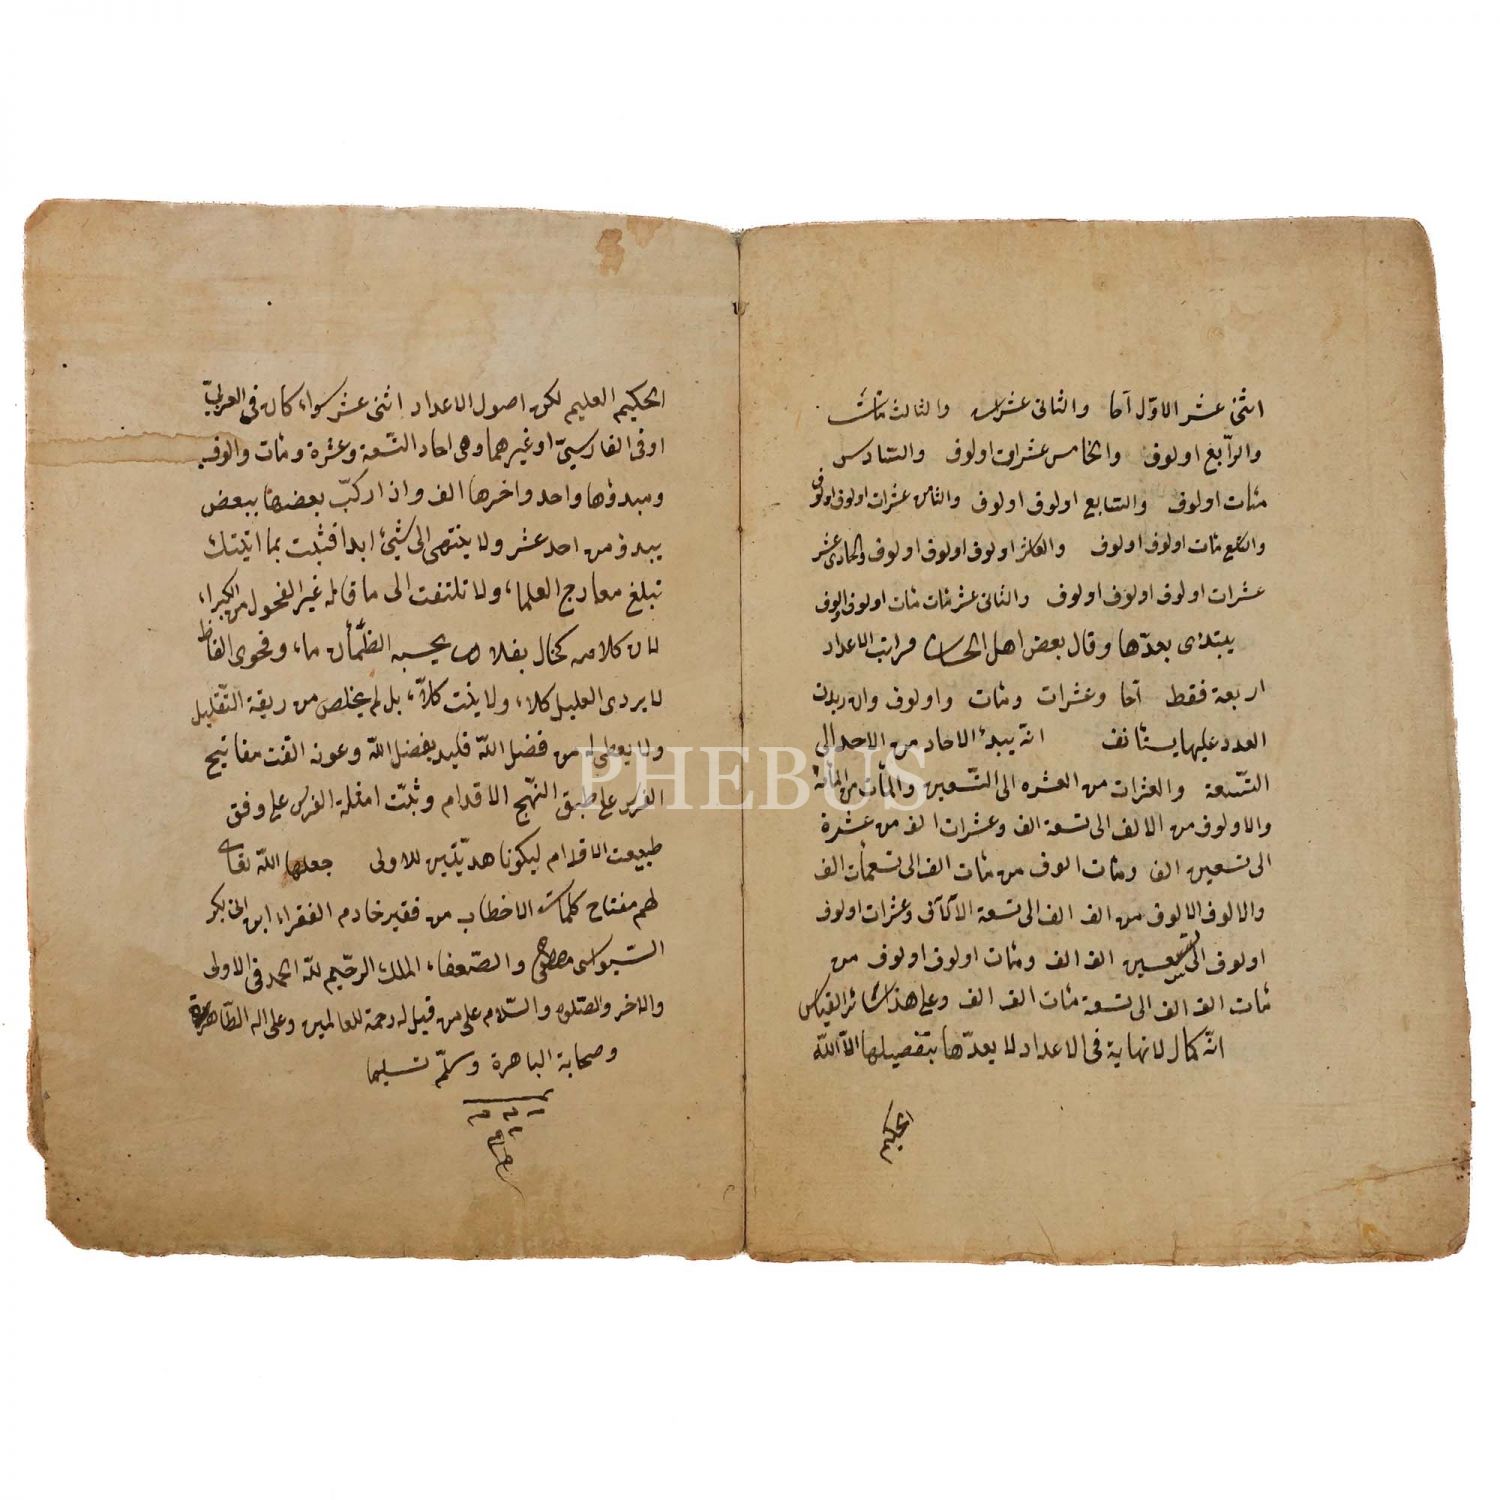 اثنى عشر الاوّل آحا والثانى عشرات والثالث مئات
والرّابع اولوف والخامس عشرات اولوف والسّادس
مئات اولوف والسّابع اولوف اولوف والثامن عشرات اولوف اولوف
والتاسع مئات اولوف اولوف والعاشر اولوف اولوف اولوف والحادى عشر
عشرات اولوف اولوف اولوف والثانى عشر مئات مئات اولوف الوف
يبتدئ بعدّها وقال بعض اهل الحساب مراتب الاعداد
اربعة فقط آحا وعشرات ومئات واولوف وان زيدت
العدد عليها يستأنف انّه يبدء الآحاد من الاحد الى
التّسعة والعشرات من العشره الى التّسعين والمأت من المأئة
والاولوف من الالف الى تسعة الف وعشرات الف من عشرة
الى تسعين الف ومئات الوف من مئات الف الى تسعمأت الف
والالوف الالوف من الف الف الى تسعة الآلاف وعشرات اولوف
اولوف الى تسعين الف الف ومئات اولوف اولوف من
مئات الف الف الى تسعة مئات الف الف وعلى هذا سائر القياس
انّه كمال لا نهاية فى الاعداد لا يعدّها بتفصيلها الّا اللّه
الحكيم
الحكيم العليم لكن اصول الاعداد اثنى عشر سواء كان فى العربىّ
او فى الفارسىّ او غيرهما وهى احاد التّسعة وعشرة ومئات والوف
ومبدؤها واحد واخرها الف واذا ركبّ بعضها ببعض
يبدؤ من احد عشر ولا ينتهى الى شيئ ابدا فثبت بما اثبتك
تبلغ معارج العلماء ولا تلتفت الى ما قاله غير الفحول من الكبراء
لان كلامه كخال بفلاة يحسبه الظّمأن ماء وفحوى الفاظ
لا يردى العليل كلاء ولا ينبت كلاّء بل لم يخلص من ربقة التّقليل
ولا يعطى له من فضل اللّه قليد بفضل اللّه وعونه الفت مفاتيح
الفرس على طبق النّهج الاقدام وثبّت امثلة الفرس على وفق
طبيعت الاقدام ليكونا هديّتين للاولى جعلها اللّه تعالى
لهم مفتاح كلمات الاخطاب من فقير خادم الفقراء ابن ابى بكر
السّيواسى مصطفى والضّعفاء الملك الرحيم للّه الحمد فى الاولى
والاخر والصّلوة والسّلام على من قيل له رحمة للعالمين وعلى اله الطّاهرة
وصحابة الباهرة وسلّم تسليما